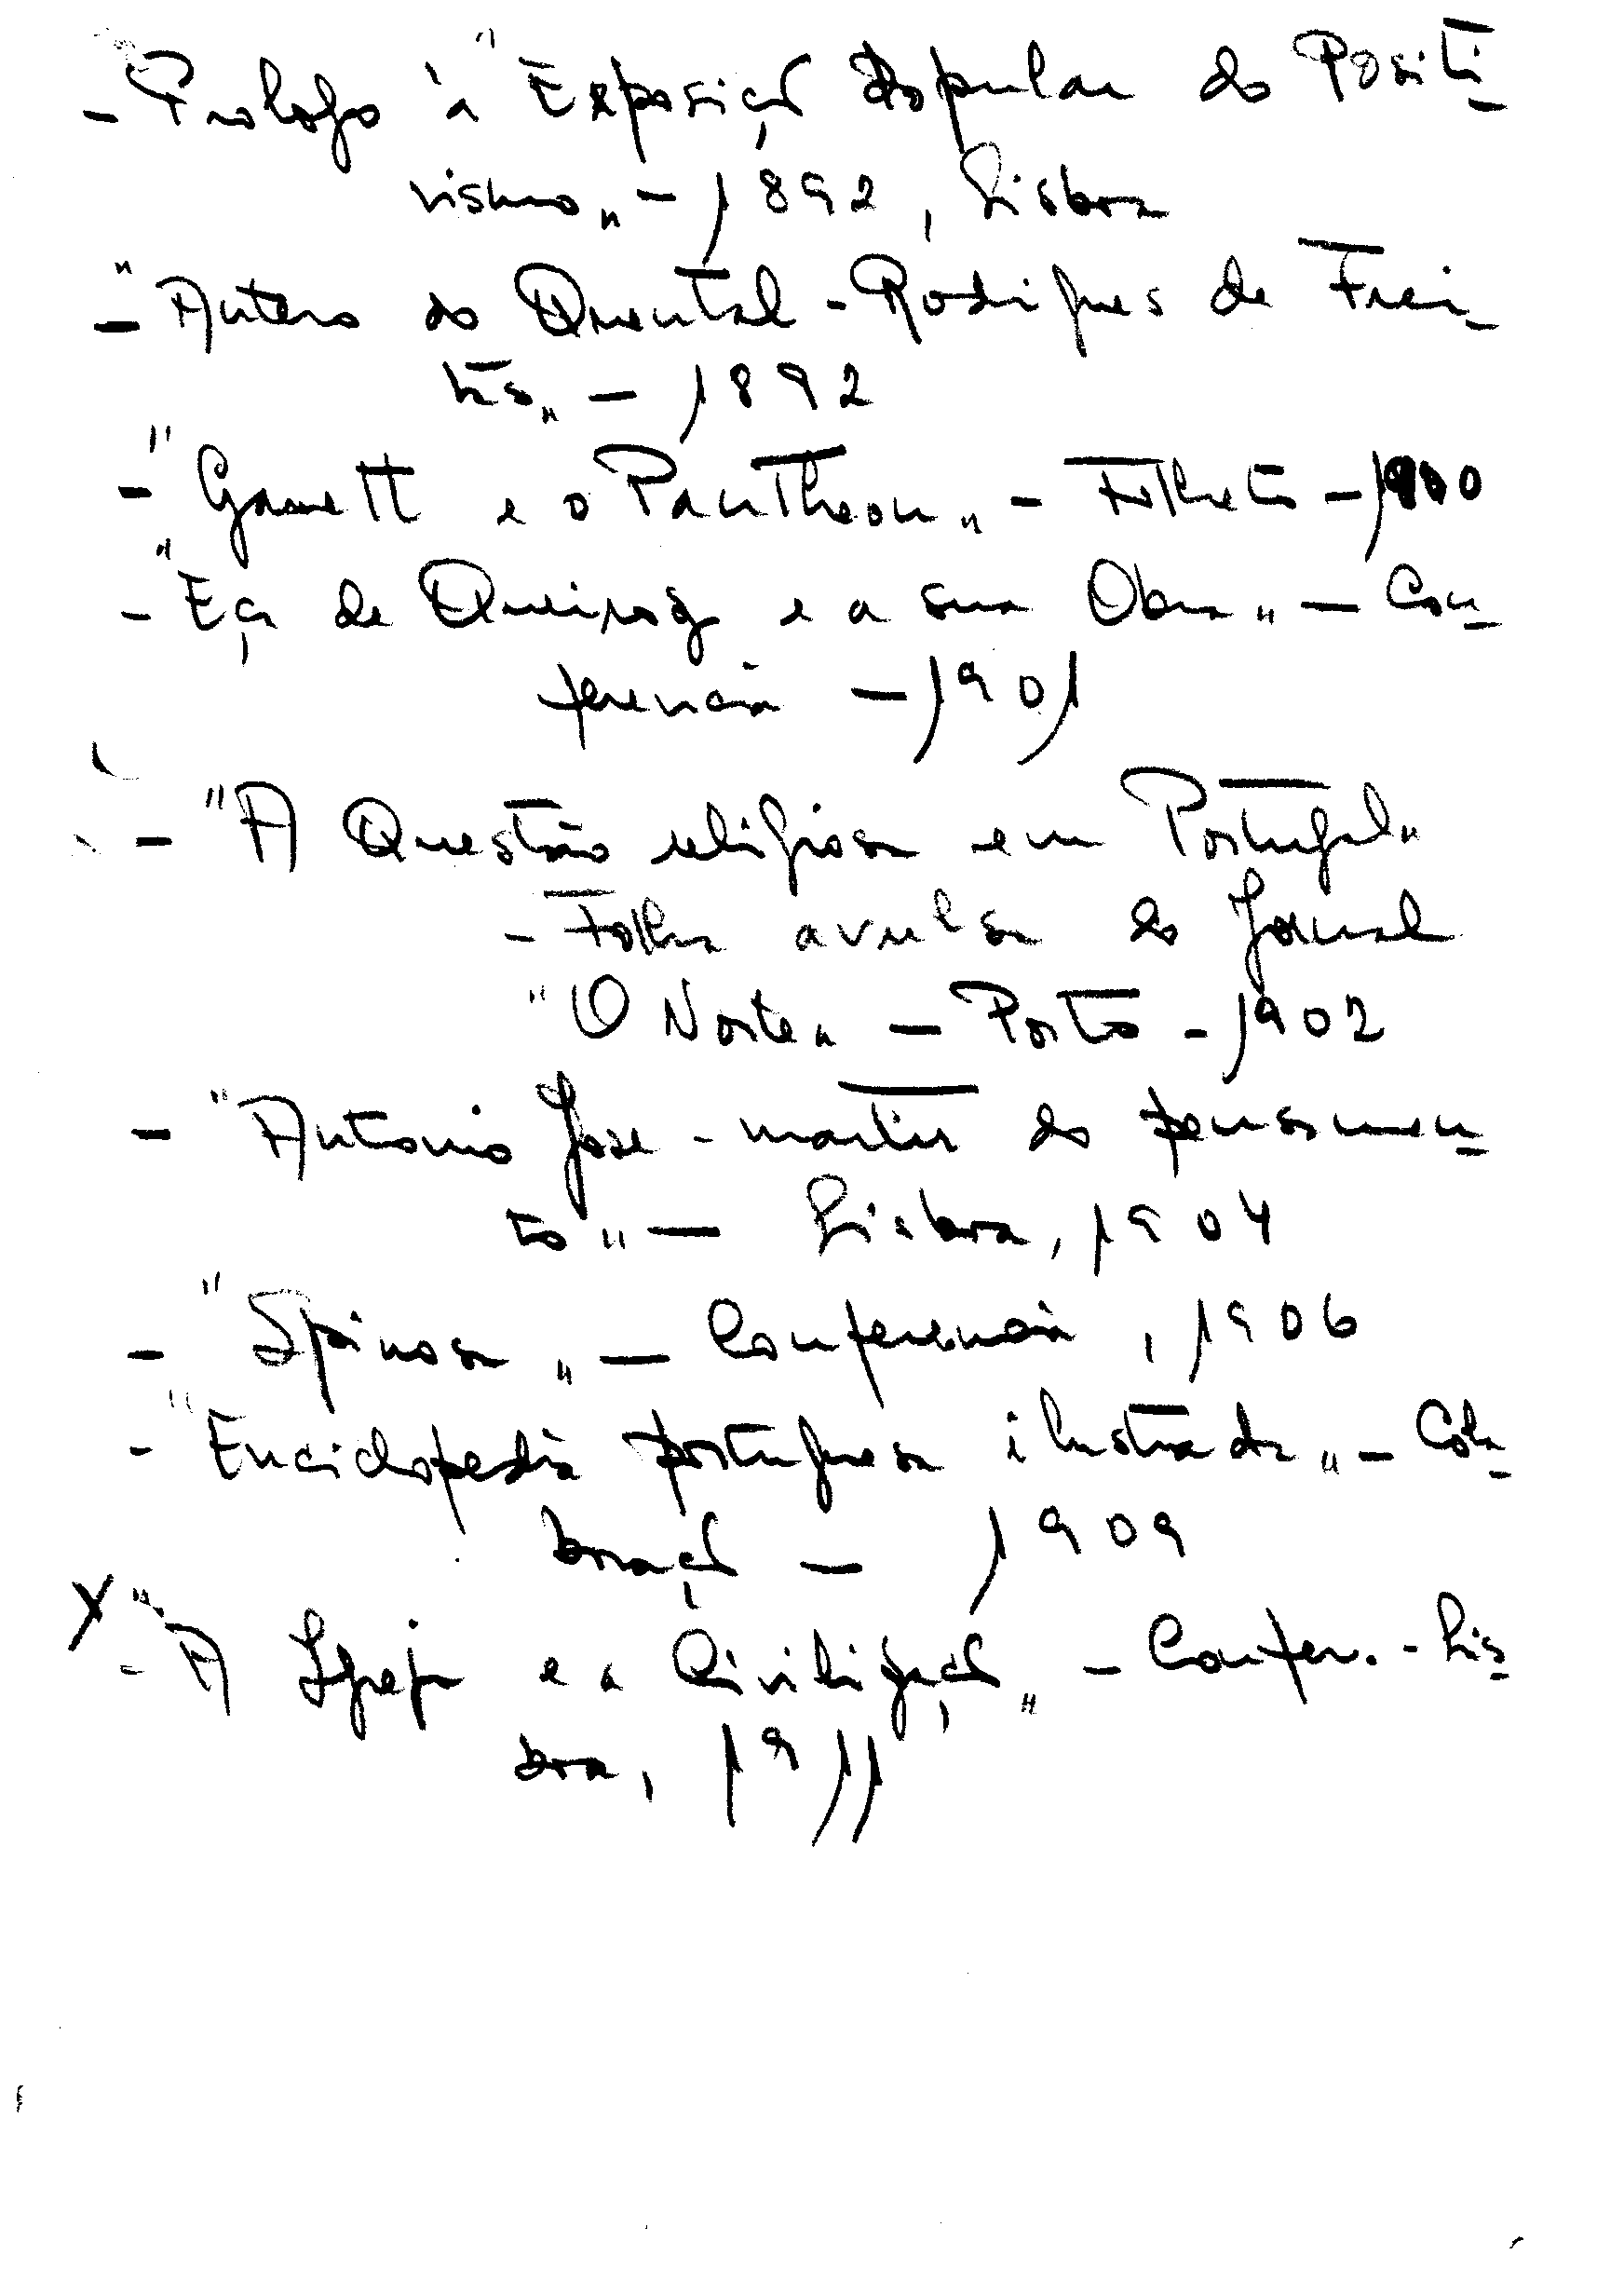 - Prologo à "Exposição Popular do Positi-
vismo" - 1892, Lisboa
- "Antero do Quental - Rodrigues de Frei-
tas" - 1892
- "Garrett e o Pantheon" - Folheto - 1900
- "Eça de Queiroz e a sua Obra" - Con-
ferencia - 1901
- "A Questão religiosa em Portugal"
- Folha avulsa do Jornal
"O Norte" - Porto - 1902
- "Antonio Jose - martir do pensamen-
to" - Lisboa, 1904
- "Spinosa" - Conferencia, 1906
- "Enciclopedia portuguesa ilustrada" - Cola-
boração - 1909
X - "A Igreja e a Civilização" - Confer. - Lis-
boa, 1911